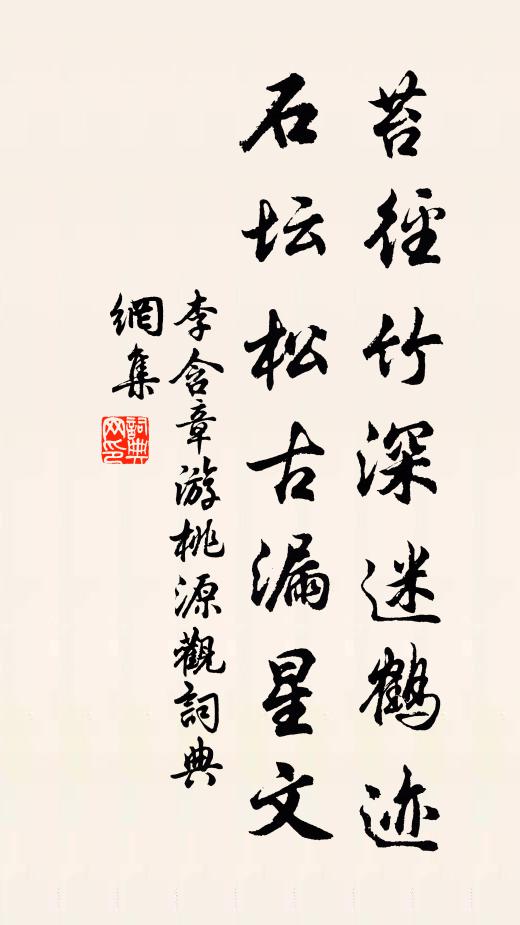 苔径竹深迷鹤迹
石坛松古漏星文
李含章游桃源觀詞典
網集
詞典
网印